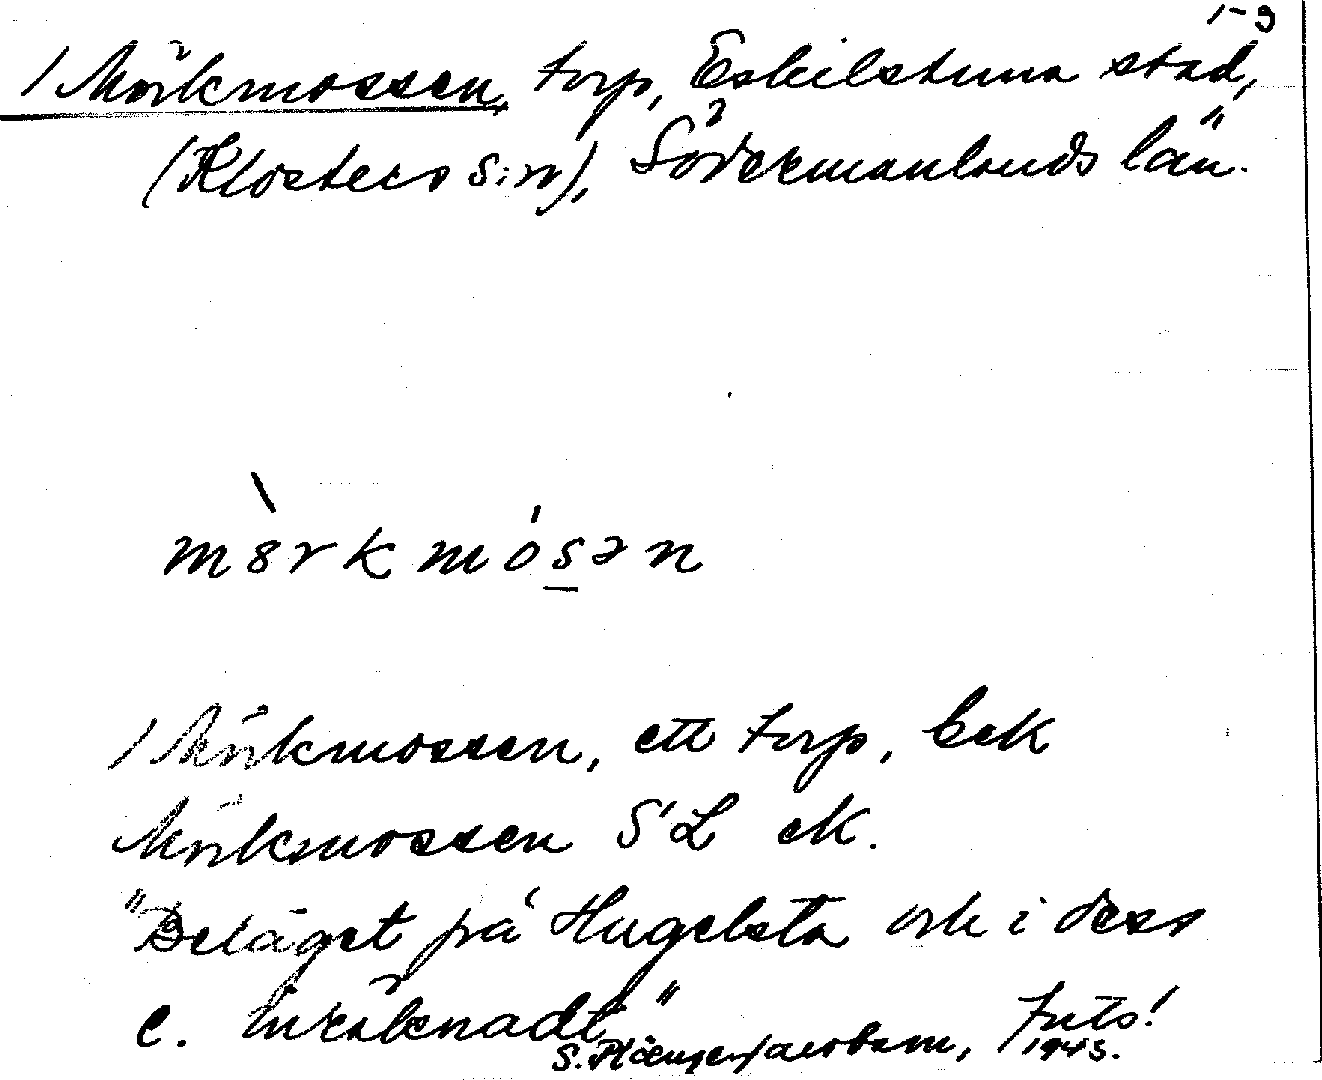 1-3
/ Mörkmossen, torp, Eskilstuna stad,
(Klosters s:n), Södermanlands län.
mörkmósən
/ Mörkmossen, ett torp, bek
Mörkmossen SL ek.
"Beläget på Hugelsta och i dess
e. inräknadt"
1945.